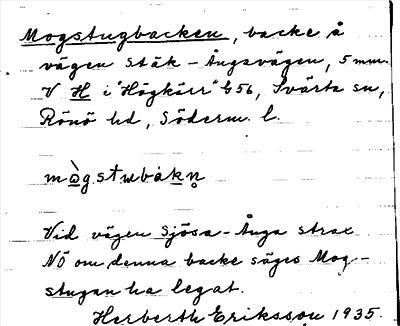 Mogstugbacken, backe å
vägen Stäk - Ångavägen, 5 mm.
V H i "Högkärr" G56, Svärta sn,
Rönö hd, Söderm. l.
mɷ̀gstɯbàkn̥
Vid vägen Sjösa-Ånga strax
NÖ om denna backe säges Mog-
stugan ha legat.
Herberth Eriksson 1935.